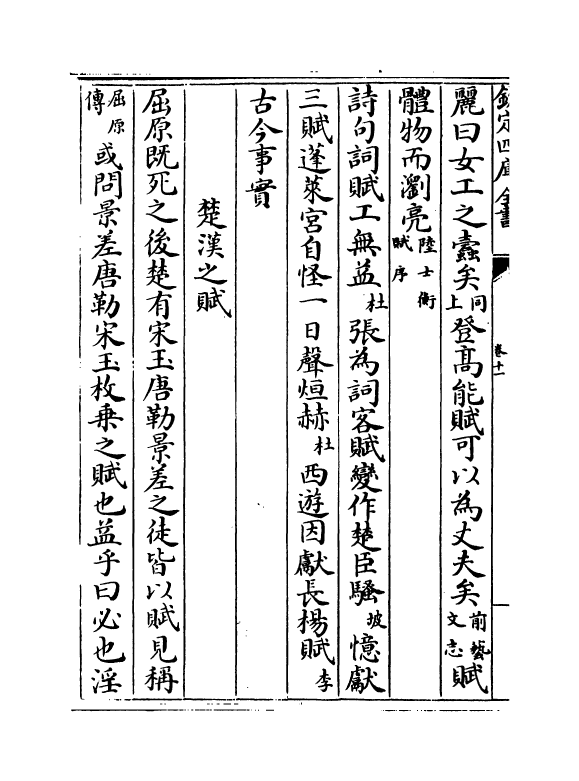 欽定四庫全書
卷十一
麗曰女工之蠹矣同上登髙能賦可以為丈夫矣前藝文志賦
體物而瀏亮陸士衡賦序
詩句詞賦工無益杜張為詞客賦變作楚臣騷坡憶獻
三賦蓬萊宮自怪一日聲烜赫杜西遊因獻長楊賦李
古今事實
楚漢之賦
屈原既死之後楚有宋玉唐勒景差之徒皆以賦見稱
屈原傳或問景差唐勒宋玉枚乗之賦也益乎曰必也淫